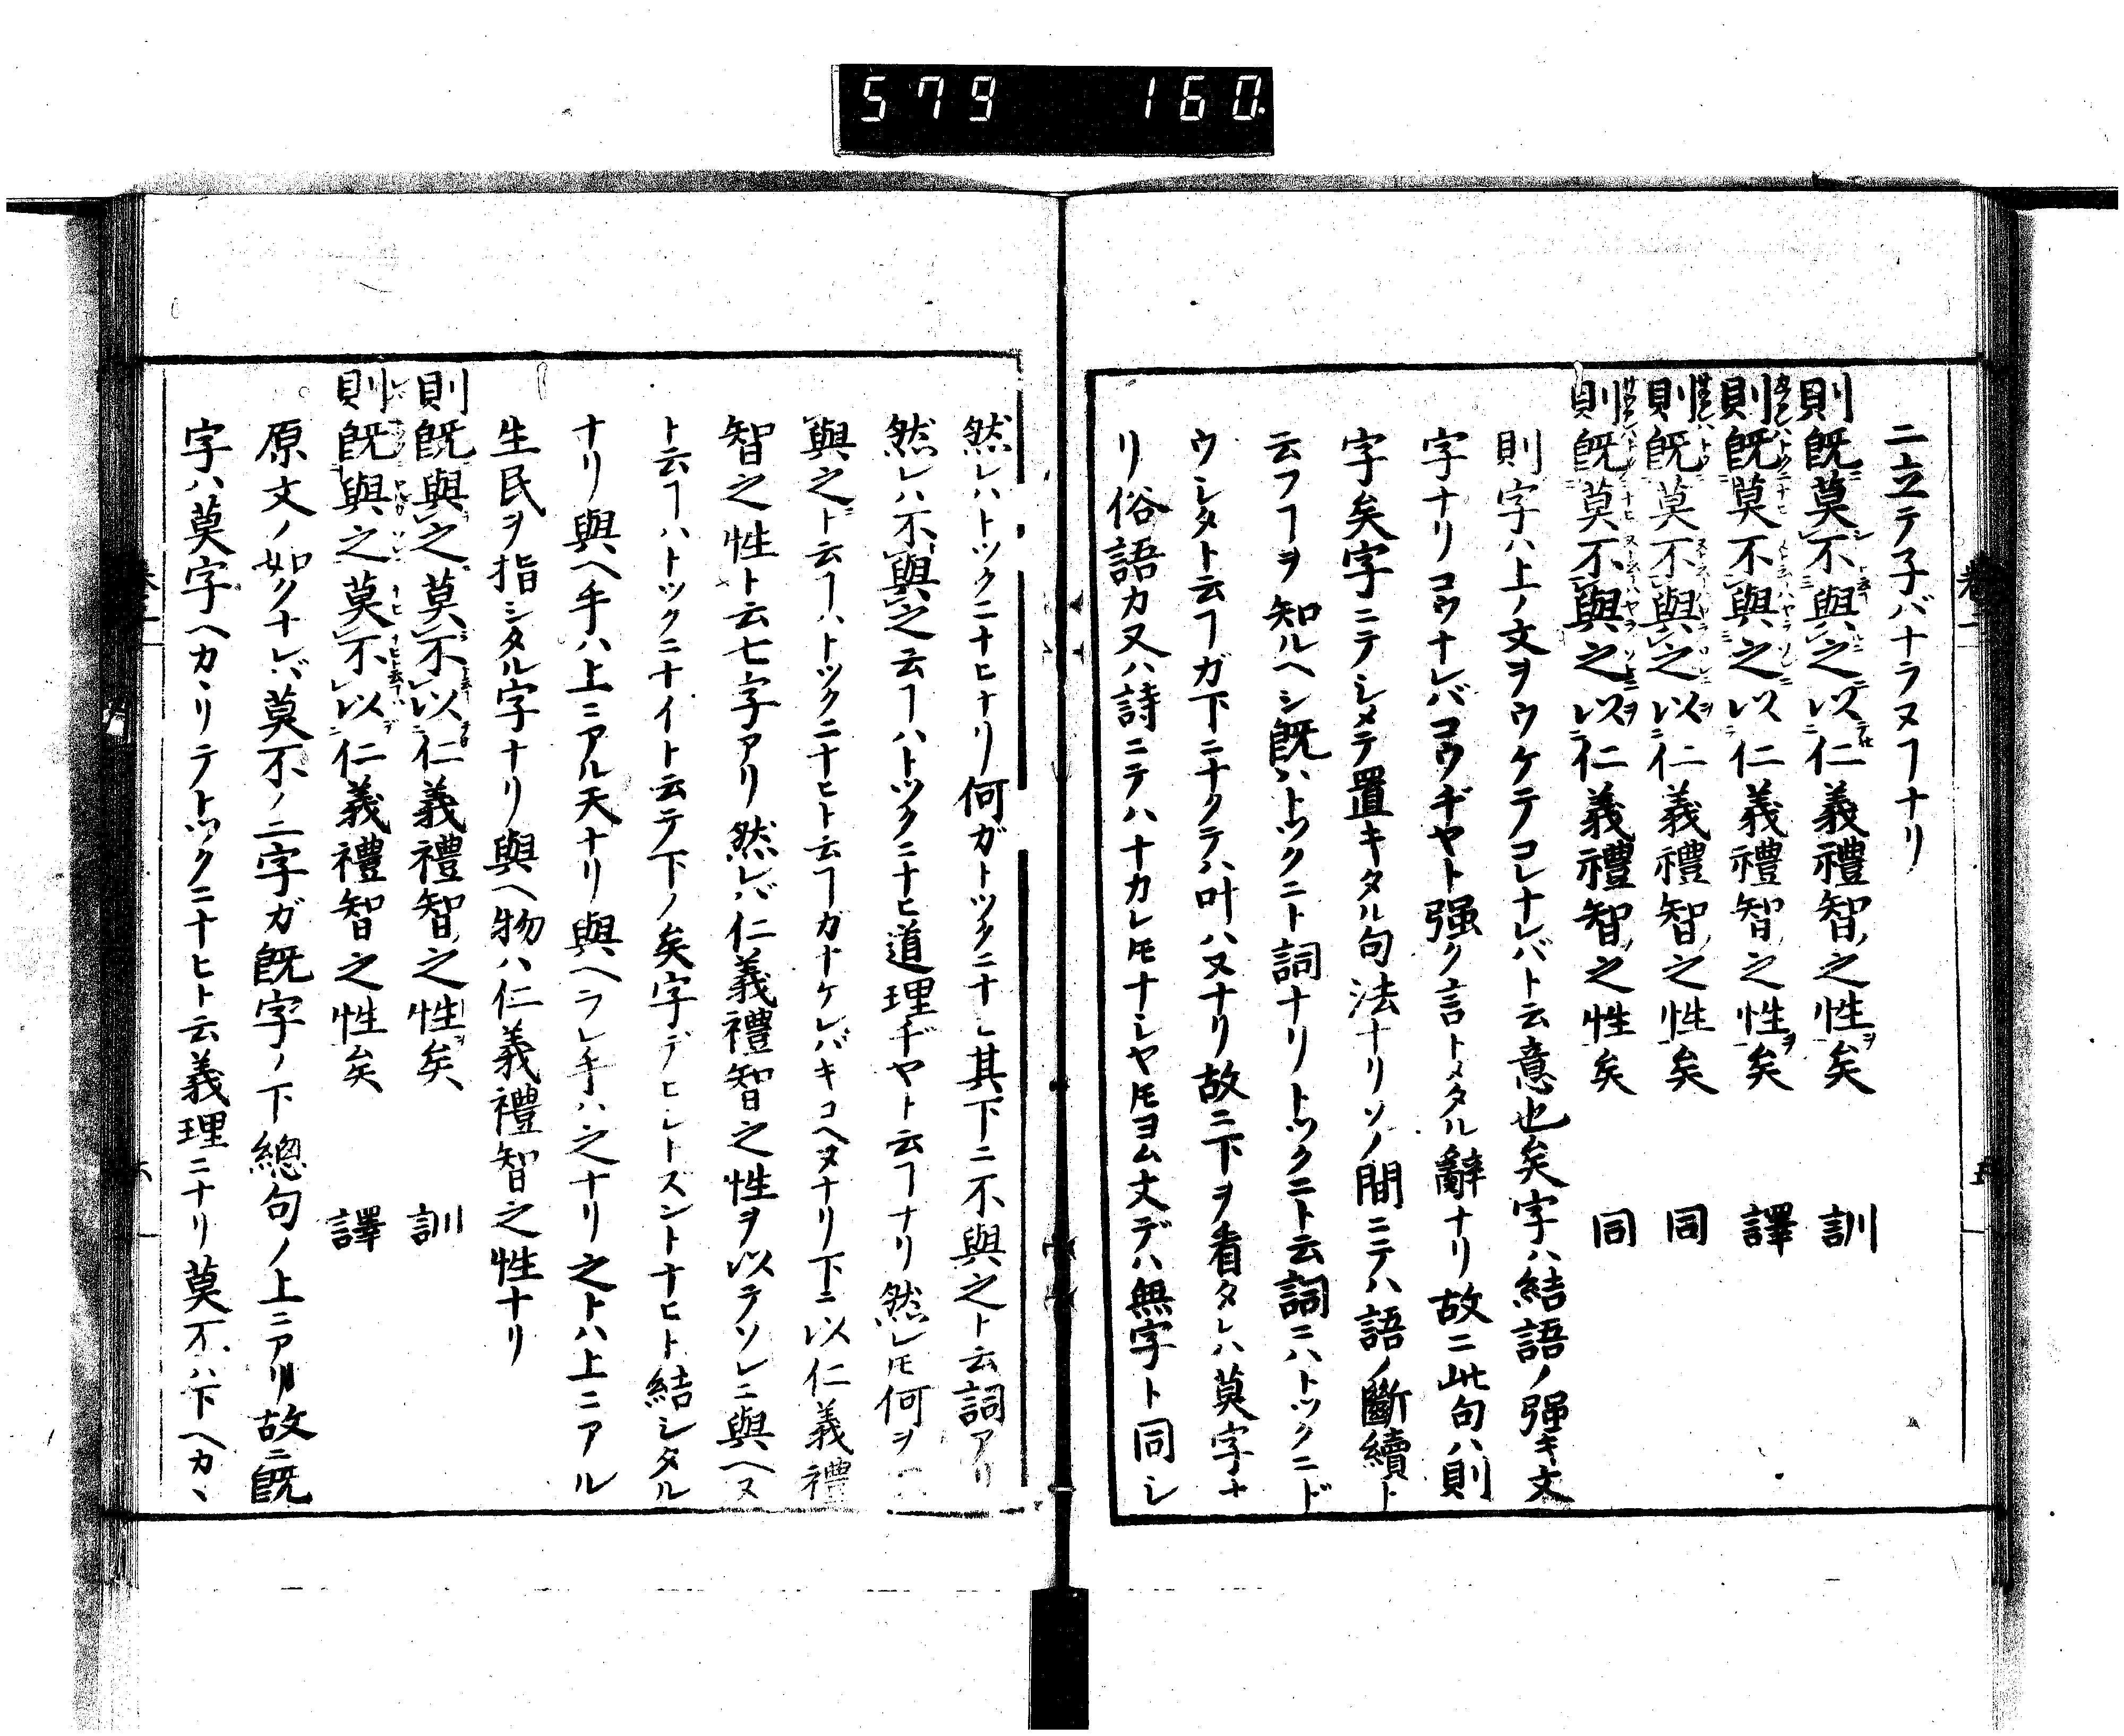 579 160
ニ立テ子バナラヌヿナリ
則既莫不與之以仁義禮智之性矣 訓
則既莫不與之以仁義禮智之性矣 譯
則既莫不與之以仁義禮智之性矣 同
則既莫不與之以仁義禮智之性矣 同
則字ハ上ノ文ヲウケテコレナレバト云意也矣字ハ結語ノ强キ文
字ナリコウナレバコウヂヤト强ク言トメタル辭ナリ故ニ此句ハ則
字矣字ニテシメテ置キタル句法ナリソノ間ニテハ語ノ斷續ト
云フヿヲ知ルヘシ既ハトツクニト詞ナリトツクニト云詞ニハトツクニド
ウシタト云ヿガ下ニナクテハ叶ハヌナリ故ニ下ヲ看タレハ莫字ナ
リ俗語カ又ハ詩ニテハナカレ𪜈ナシヤ𪜈ヨム文デハ無字ト同シ
然レハトツクニナヒナリ何ガトツクニナシ其下ニ不與之ト云詞アリ
然レハ不與之云ヿハトツクニナヒ道理ヂヤト云ヿナリ然レ𪜈何ヲ
與之ト云ヿハトツクニナヒト云ヿカナケレバキコヘヌナリ下ニ以仁義禮
智之性ト云七字アリ然レバ仁義禮智之性ヲ以テソレニ與ヘヌ
ト云ヿハトツクニナイト云テ下ノ矣字デヒシトズントナヒト結シタル
ナリ與ヘ手ハ上ニアル天ナリ與ヘラレ手ハ之ナリ之トハ上ニアル
生民ヲ指シタル字ナリ與ヘ物ハ仁義禮智之性ナリ
則既與之莫不以仁義禮智之性矣 訓
則既與之莫不以仁義禮智之性矣 譯
原文ノ如クナレバ莫不ノ二字ガ既字ノ下總句ノ上ニアリ故ニ既
字ハ莫字ヘカヽリテトツクニナヒト云義理ニナリ莫不ハ下ヘカヽ